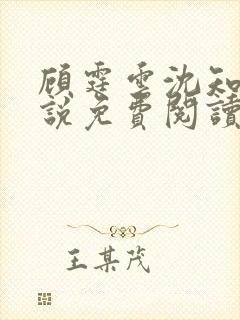 顾霆雲沈知
說免費閱讀
王某茂